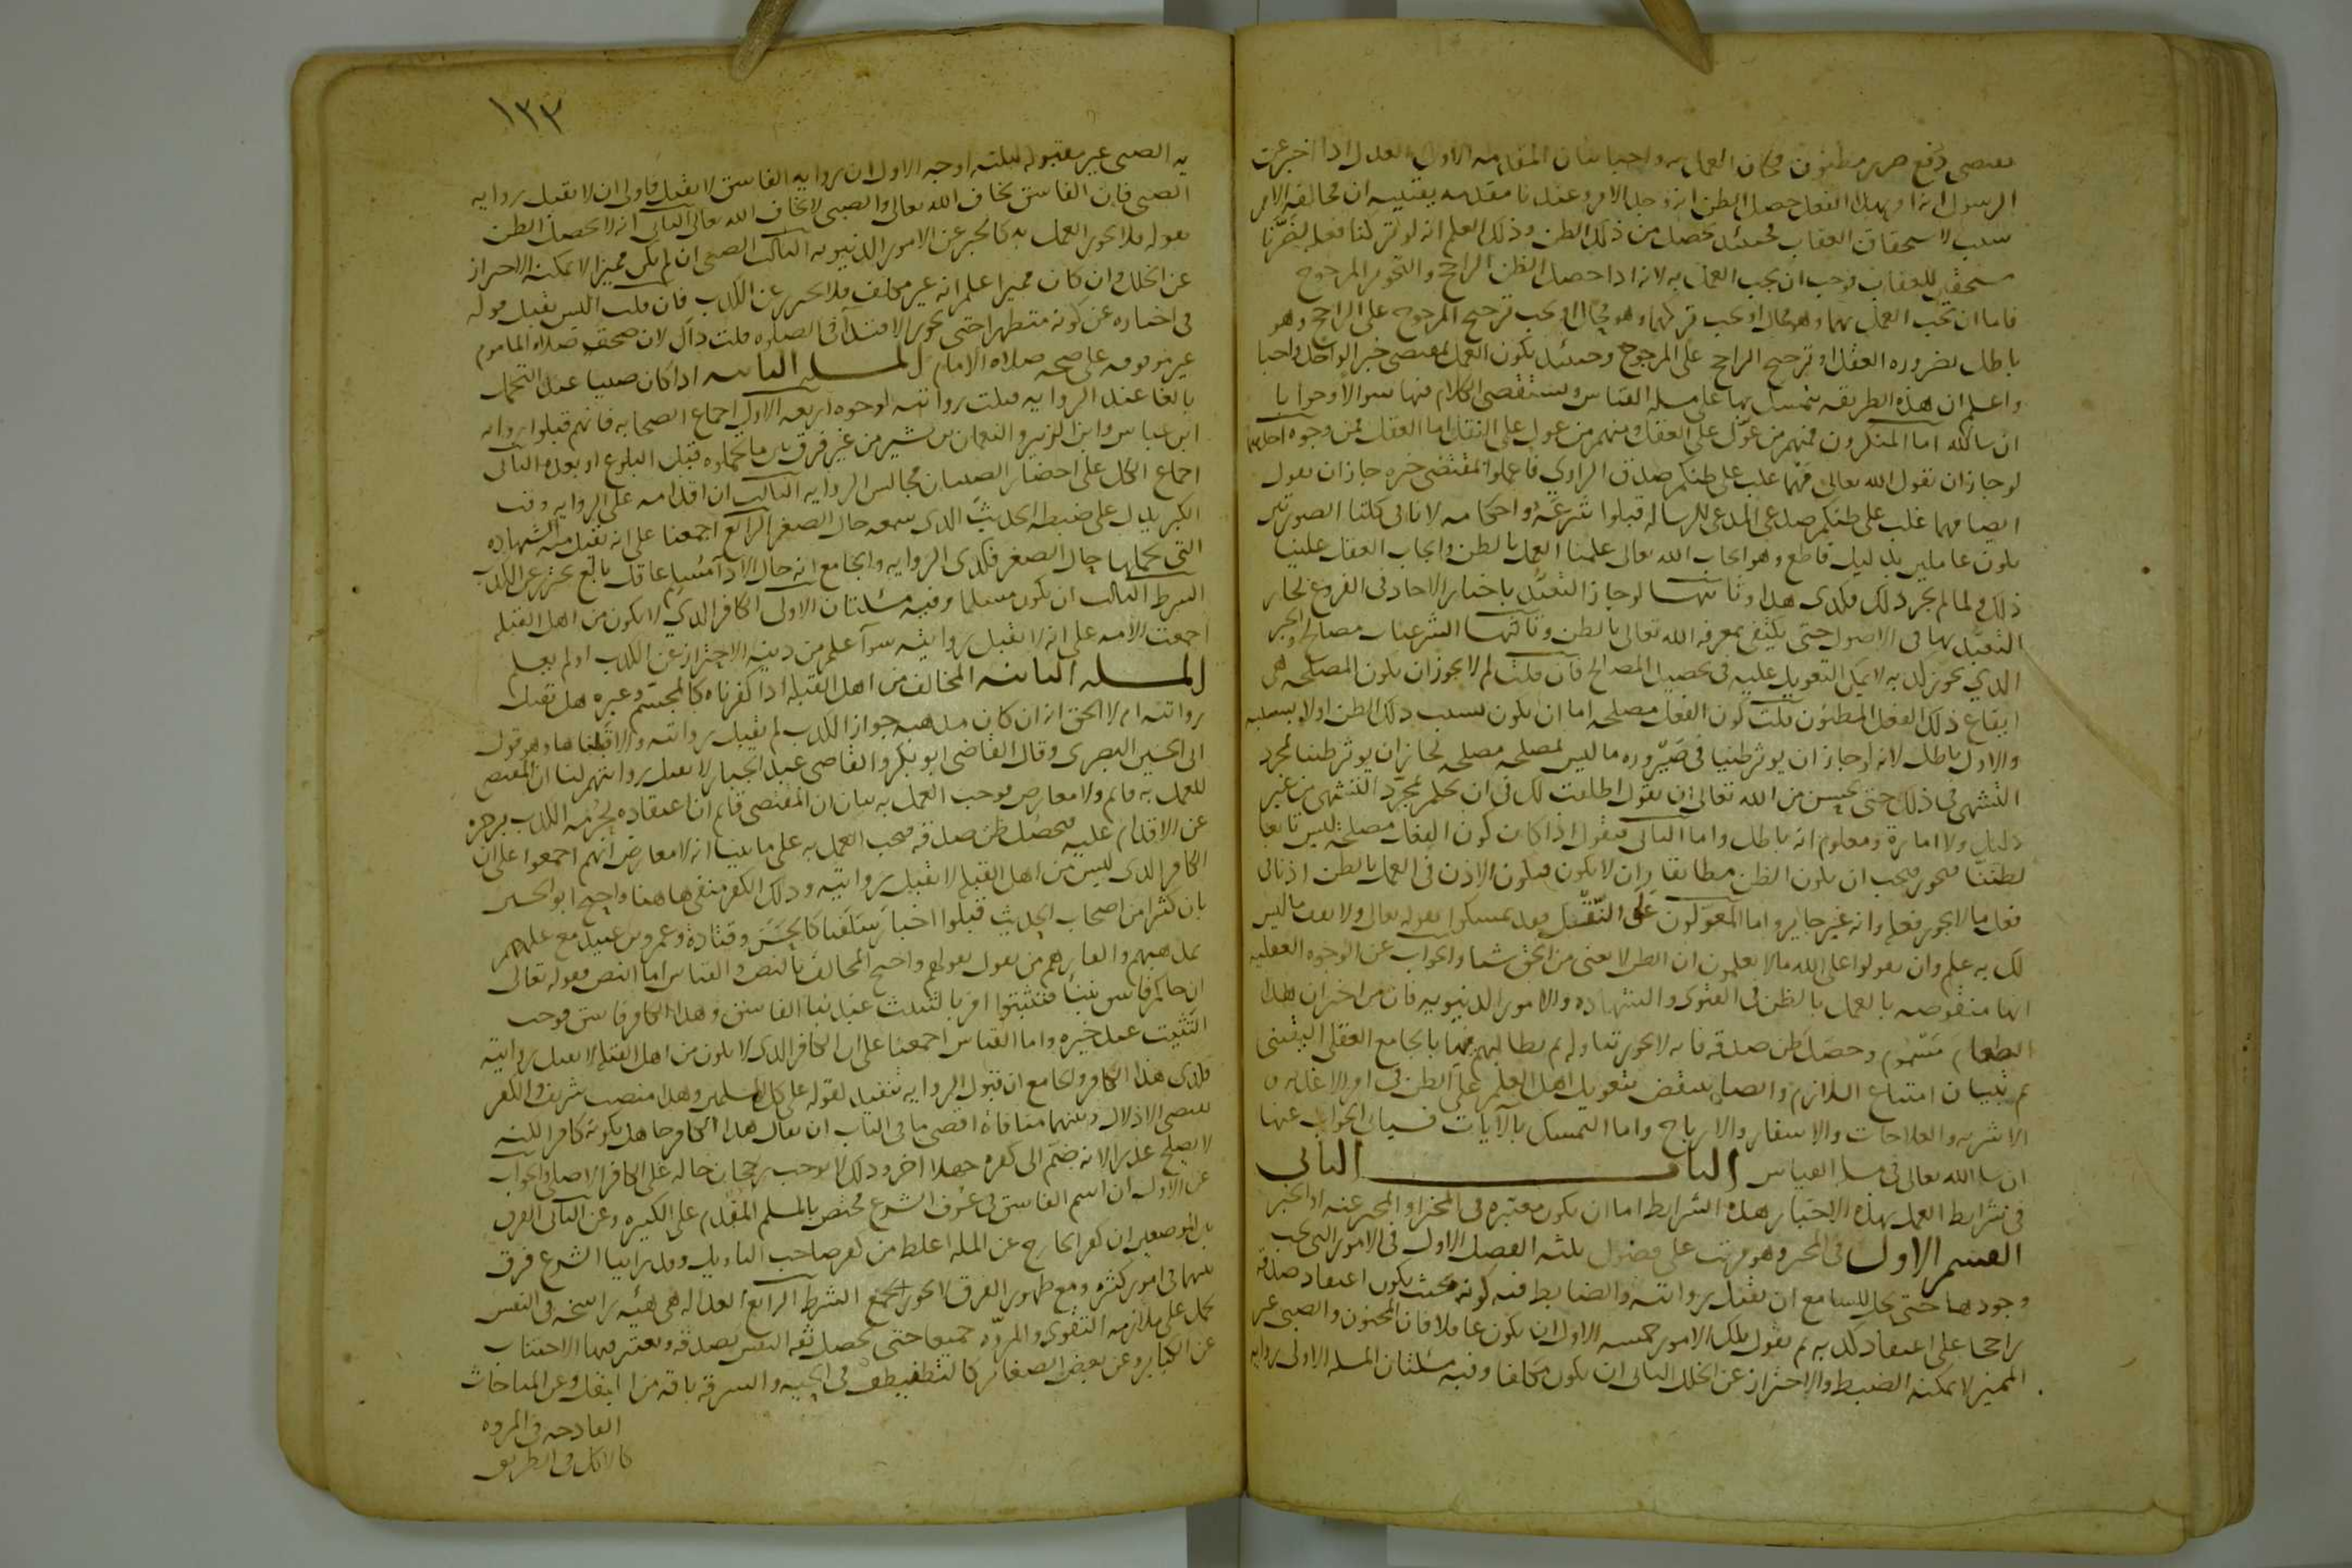 يقتضي دفع ضرر مظنون فكان العمل به واجبا بيان المقدمة الاولى العدل اذا اخبر عن
الرسول انه امر بهذا الفعل حصل الظن انه وجد الامر وعندنا مقدمة يقينية ان مخالفة الامر
سبب لاستحقاق العقاب فحينئذ يحصل من ذلك الظن وذلك العلم انه لو تركنا فعله لصرنا
مستحقين للعقاب فوجب ان يجب العمل به لانه اذا حصل الظن الراجح والتجويز المرجوح
فاما ان يجب العمل بهما وهو محال او يجب تركهما وهو محال او يجب ترجيح المرجوح على الراجح وهو
باطل بضرورة العقل او ترجيح الراجح على المرجوح وحينئذ يكون العمل بمقتضى خبر الواحد واجبا
واعلم ان هذه الطريقة يتمسك بها على مسلة القياس وسنستقصي الكلام فيها سوالا وجوابا
ان شا الله اما المنكرون فمنهم من عوّل على العقل ومنهم من عول على النقل اما العقل فمن وجوه احدها
لو جاز ان يقول الله تعالى مهما غلب على ظنكم صدق الراوي فاعملوا بمقتضى خبره جاز ان يقول
ايضا مهما غلب على ظنكم صدق المدعي للرسالة فاقبلوا شرعه واحكامه لانا في كلتا الصورتين
نكون عاملين بدليل قاطع وهو ايجاب الله تعالى علينا العمل بالظن وايجاب العقل علينا
ذلك فلما لم يجز ذلك فكذى هذا وثانيها لو جاز التعبّد باخبار الاحاد في الفروع لجاز
التعبّد بها في الاصول حتى يكتفى بمعرفة الله تعالى بالظن وثالثها الشرعيات مصالح والخبر
الذي يجوز كذبه لا يمكن التعويل عليه في تحصيل المصالح فان قلت لم لا يجوز ان يكون المصلحة هي
ايقاع ذلك الفعل المظنون قلت كون الفعل مصلحة اما ان يكون بسبب ذلك الظن اولا بسببه
والاول باطل لانه لو جاز ان يوثر ظننا في صيّرورة ما ليس بمصلحة مصلحة لجاز ان يوثر ظننا بمجرد
التشهي في ذلك حتى يحسن من الله تعالى ان يقول اطلقت لك في ان تحكم بمجرّد التشهي من غير
دليل ولا امارة ومعلوم انه باطل واما الثاني فنقول اذا كان كون الفعل مصلحة ليس تابعا
لظننا فيجوز فيجب ان يكون الظن مطابقا وان لا يكون فيكون الاذن في العمل بالظن اذنا في
فعل ما لا يجوز فعله وانه غير جايز واما المعوّلون على النّقل فقد تمسكوا بقوله تعالى ولا تقف ما ليس
لك به علم وان تقولوا على الله ما لا تعلمون ان الظن لا يغني من الحق شيا والجواب عن الوجوه العقلية
انها منقوضة بالعمل بالظن في الفتوى والشهادة والامور الدنيوية فان من اخبر ان هذا
الطعام مسموم وحصل ظن صدقه فانه لا يجوز تناوله ثم نطالبهم فيها بالجامع العقلي اليقيني
ثم ببيان امتناع اللازم وايضا ينتقض بتعويل اهل العلم على الظن في امر الاغذية
الاشربه والعلاجات والاسفار والارباح واما التمسك بالآيات فسياتي الجواب عنها
ان شا الله تعالى في مسلة القياس الباب الثاني
في شرايط العمل بهذه الاخبار وهذه الشرايط اما ان يكون معتبرة في المخبر او المخبر عنه او الخبر
القسم الاول في المخبر وهو مرتب على فصول ثلثة الفصل الاول في الامور التي يجب
وجودها حتى يحل للسامع ان يقبل روايته والضابط فيه كونه بحيث يكون اعتقاد صدقه
راجحا على اعتقاد كذبه ثم نقول تلك الامور خمسة الاول ان يكون عاقلا فان المجنون والصبي غير
المميز لا يمكنه الضبط والاحتراز عن الخلل الثاني ان يكون مكلفا وفيه مسئلتان المسلة الاولى روايه
١٣٣
يه الصبي غير مقبولة لثلثة اوجه الاول ان رواية الفاسق لا يقبل فاولى ان لا يقبل رواية
الصبي فان الفاسق يخاف الله تعالى والصبي لا يخاف الله تعالى الثاني انه لا يحصل الظن
بقوله فلا يجوز العمل به كالخبر عن الامور الدنيوية الثالث الصبي ان لم يكن مميزا لا يمكنه الاحتراز
عن الخلل وان كان مميزا علم انه غير مكلف فلا يحترز عن الكذب فان قلت اليس يقبل قوله
في اخباره عن كونه متطهرا حتى يجوز الاقتدآ في الصلوة قلت ذاك لان صحة صلاة الماموم
غير موقوفة على صحة صلاة الامام المسلة الثانية اذا كان صبيا عند التحمل
بالغا عند الرواية قبلت روايته لوجوه اربعة الاول اجماع الصحابة فانهم قبلوا رواية
ابن عباس وابن الزبير والنعمان بن بشير من غير فرق بين ما تحملوه قبل البلوغ او بعده الثاني
اجماع الكل على احضار الصبيان مجالس الرواية الثالث ان اقدامه على الرواية وقت
الكبر يدل على ضبطه الحديث الذي سمعه حال الصغر الرابع اجمعنا على انه يقبل منه الشهادة
التي تحملها حال الصغر فكذى الرواية والجامع انه حال الادآ مسلم عاقل بالغ يحترز عن الكذب
الشرط الثالث ان يكون مسلما وفيه مسئلتان الاولى الكافر الذي لا يكون من اهل القبلة
اجمعت الامة على انه لا يقبل روايته سوآ علم من دينه الاحتراز عن الكذب او لم يعلم
المسلة الثانية المخالف من اهل القبلة اذا كفرناه كالمجسّم وغيره هل يقبل
روايته ام لا الحق انه ان كان مذهبه جواز الكذب لم يقبل روايته والا قبلناها وهو قول
ابي الحسين البصري وقال القاضي ابو بكر والقاضي عبد الجبار لا يقبل روايتهم لنا ان المقتضي
للعمل به قائم ولا معارض فوجب العمل به بيان ان المقتضي قائم ان اعتقاده بحُرمة الكذب يزجره
عن الاقدام عليه فيحصل ظن صدقه فيجب العمل به على ما بينا انه لا معارض انهم اجمعوا على ان
الكافر الذي ليس من اهل القبلة لا يقبل روايته وذلك الكفر منفي هاهنا واحتج ابو الحسين
بان كثيرا من اصحاب الحديث قبلوا اخبار سلفنا كالحسن وقتادة وعمرو بن عبيد مع علمهم
بمذهبهم واكفارهم من يقول بقولهم واحتج المخالف بالنص والقياس اما النص فقوله تعالى
ان جاكم فاسق بنبأ فتثبتوا امر بالتثبت عند نبا الفاسق وهذا الكافر فاسق فوجب
التثبت عند خبره واما القياس اجمعنا على ان الكافر الذي لا يكون من اهل القبلة لا يقبل روايته
فكذى هذا الكافر والجامع ان قبول الرواية تنفيذ لقوله على كل المسلمين وهذا منصب شريف والكفر
يقتضي الاذلال وبينهما منافاة اقصى ما في الباب ان يقال هذا الكافر جاهل بكونه كافرا لكنه
لا يصلح عذرا لانه ضمّ الى كفره جهلا اخر وذلك لا يوجب رجحان حاله على الكافر الاصلي والجواب
عن الاول ان اسم الفاسق في عُرف الشرع مختص بالمسلم المقدم على الكبيرة وعن الثاني الفرق
بين الموضعين ان كفر الخارج عن الملة اغلظ من كفر صاحب التاويل وقد راينا الشرع فرق
بينهما في امور كثيرة ومع ظهور الفرق لا يجوز الجمع الشرط الرابع العدالة هي هيئة راسخة في النفس
تحمل على ملازمة التقوى والمروّة جميعا حتى تحصل ثقة النفس بصدقه ويعتبر فيها الاجتناب
عن الكباير وعن بعض الصغائر كالتطفيف في الحبة والسرقة باقة من البقل وعن المباحات
القادحة في المروه
كالاكل في الطريق